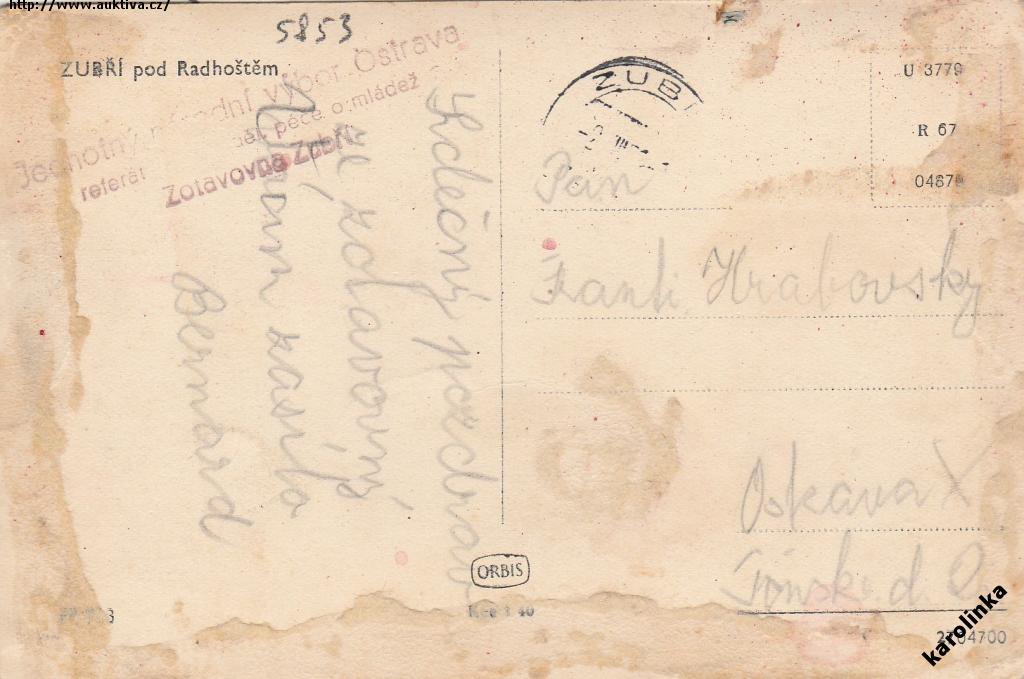 http://www.auktiva.cz/
5853
ZUBŘÍ pod Radhoštěm
Jednotný národní výbor Ostrava
referát péče o mládež
Zotavovna Zubří
Srdečný pozdrav
ze zotavovny
Vám zasílá
Bernard
ZUB
U 3779
R 67
0467
Pan
Hrabovsky
Ostrava X
ORBIS
Kčs 1 40
04700
karolinka